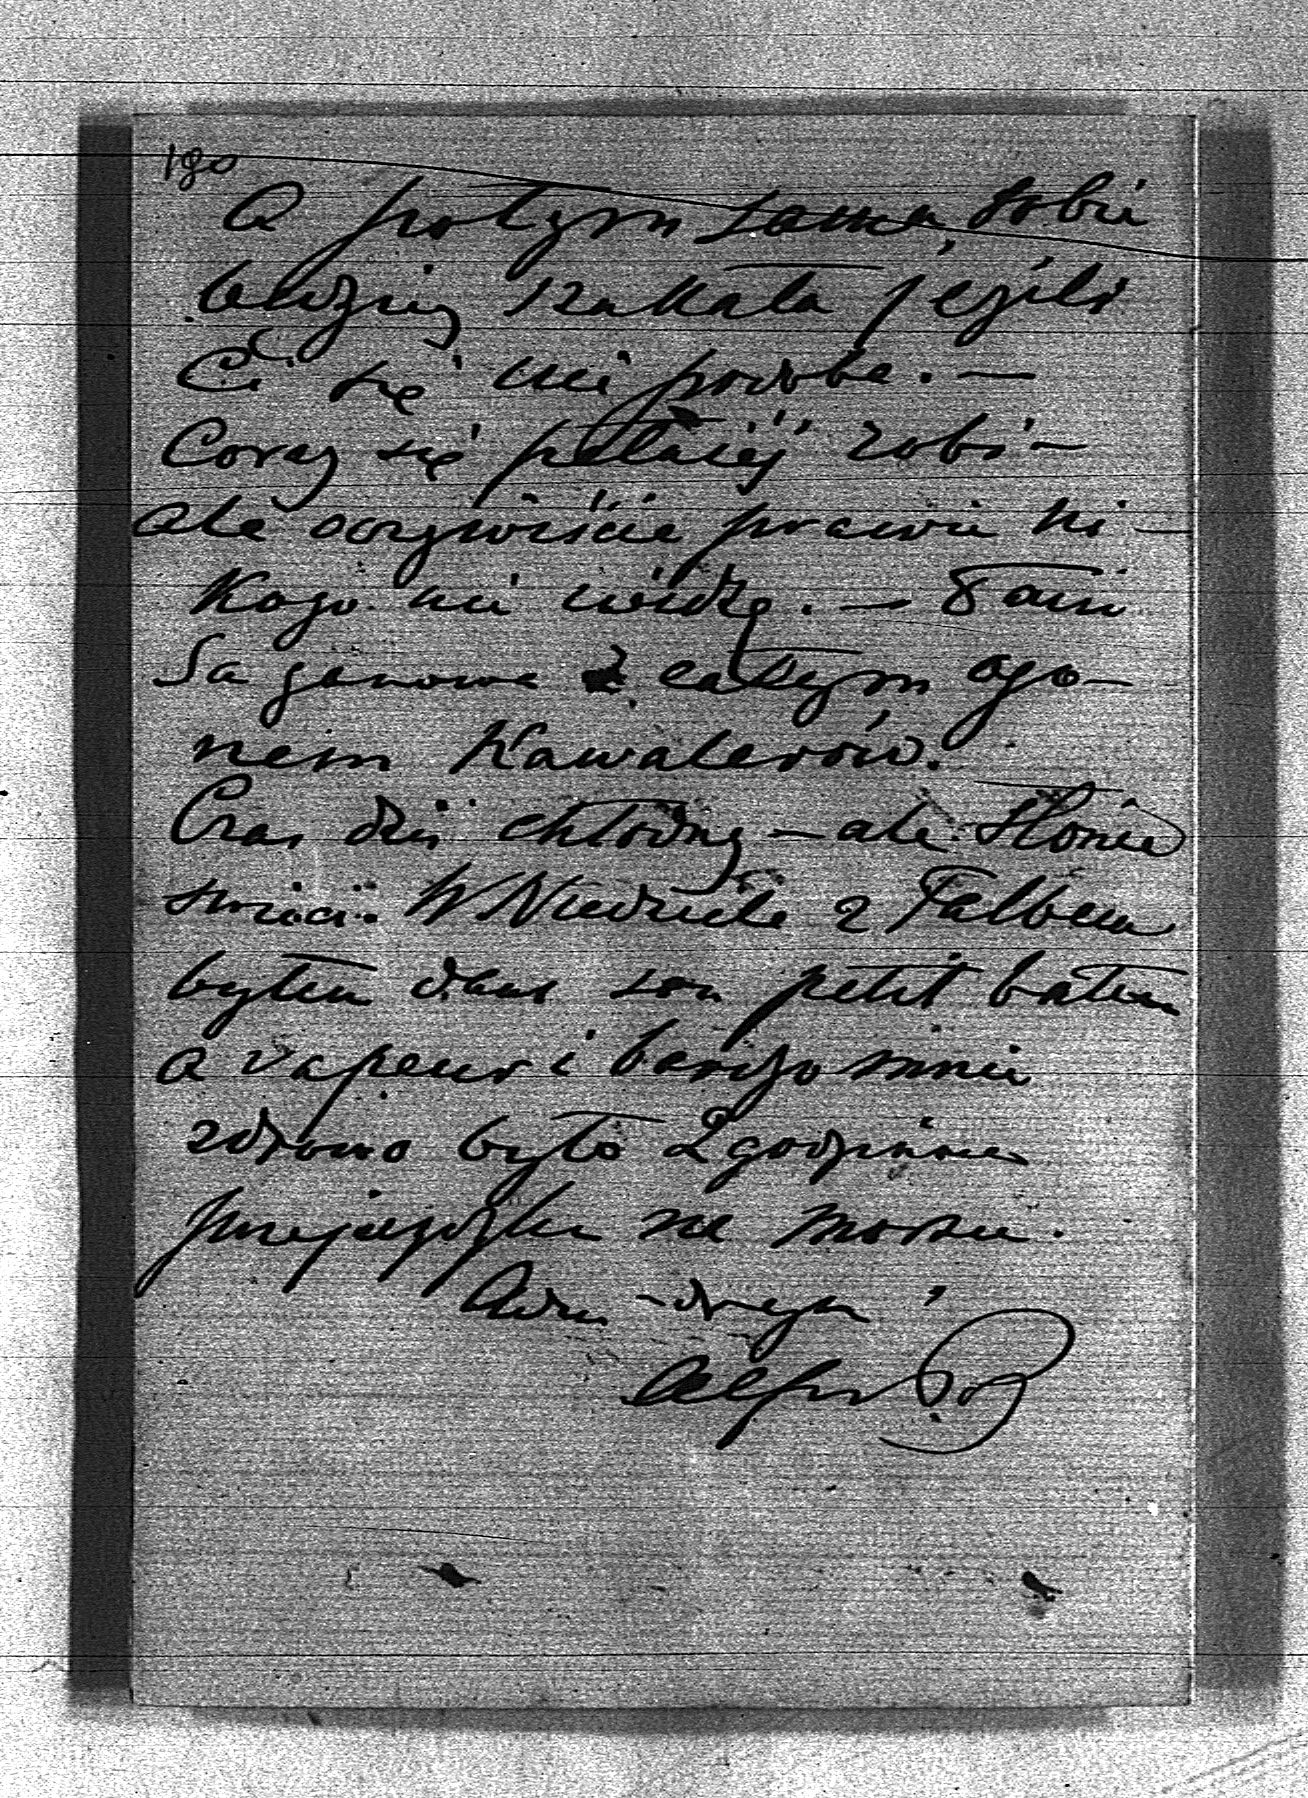 190
A potym sama sobie
będziesz szukała jeżeli
Ci się nie podoba. —
Coraz się pełniej robi —
ale oczywiście prawie ni-
kogo nie widzę. — Pani
Sazonowa z całym ogo-
nem Kawalerów.
Czas dziś chłodny — ale słońce
świeci. W Niedziele z Falbem
byłem dans son petit bateau
a vapeur i bardzo mnie
zdrowo było 2 godzinna
przejażdżka na morzu.
Adieu - droga
Alfred Po